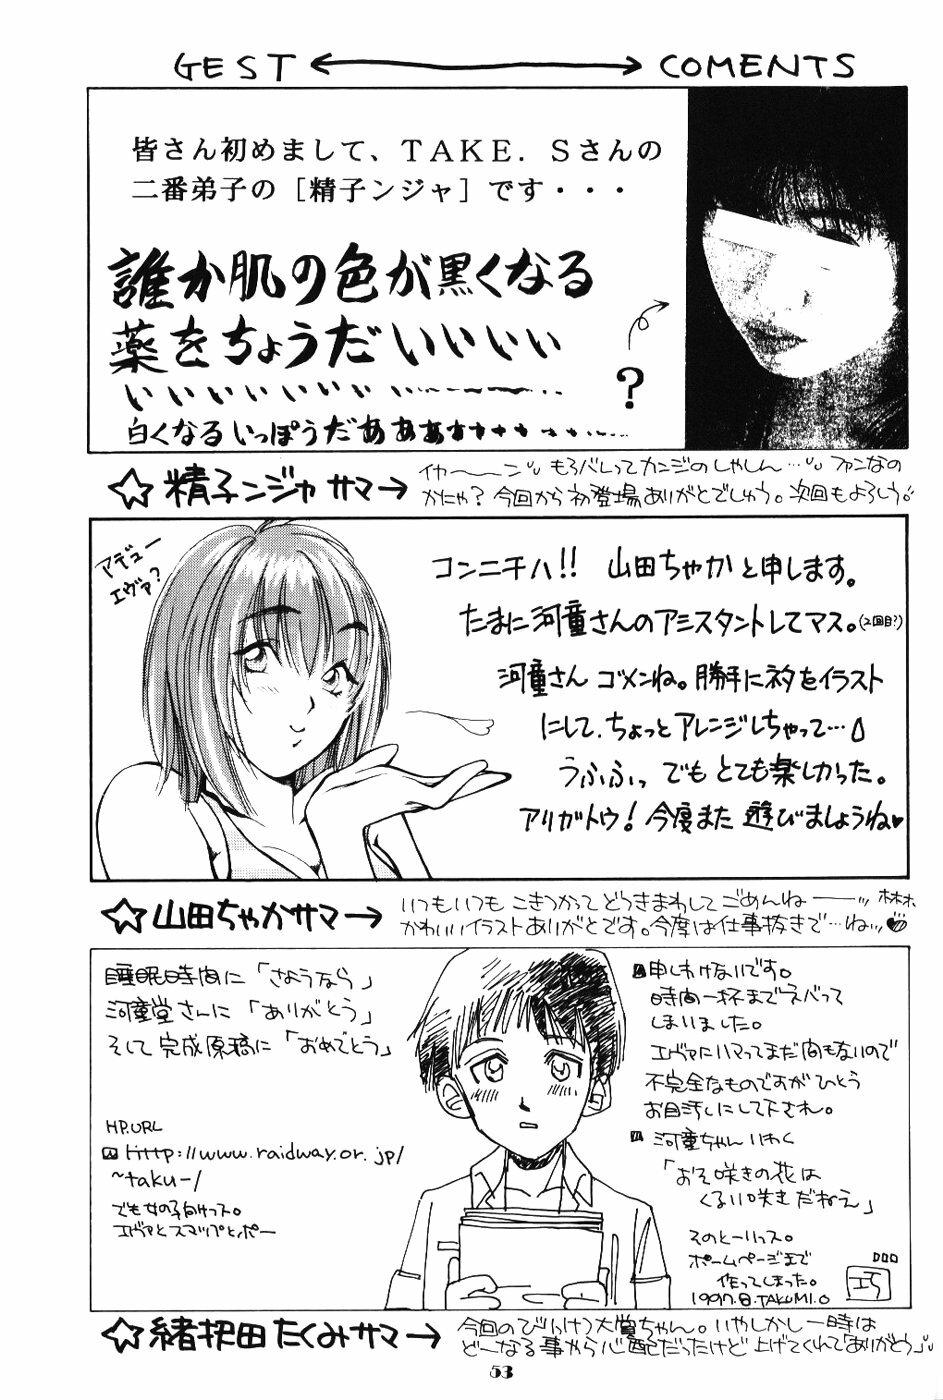 GEST ←→ COMENTS
皆さん初めまして、TAKE.Sさんの
二番弟子の[精子ンジャ]です・・・
誰か肌の色が黒くなる
薬をちょうだいぃぃぃ
ぃぃぃぃぃぃぃぃ
白くなるいっぽうだぁぁぁぁ
?
☆精子ンジャサマ→
イヤ〜〜ン もろバレってカンジのしゃしん… ファンなの
かにゃ?今回から初登場ありがとでしゅう。次回もよろしう!
アデュー
エヴァ?
コンニチハ!! 山田ちゃかと申します。
たまに河童さんのアシスタントしてマス。(2回目?)
河童さんゴメンね。勝手にネタをイラスト
にして、ちょっとアレンジしちゃって…
うふふっ でもとても楽しかった。
アリガトウ!今度また遊びましょうね♥
☆山田ちゃかサマ→
いつもいつもこきつかってどうきまわしてごめんねー
かわいいイラストありがとです。今度は仕事抜きで…ね
睡眠時間に「さようなら」
河童堂さんに「ありがとう」
そして完成原稿に「おめでとう」
HP.URL
http://www.raidway.or.jp/
~taku-/
でも女の子向けっス。
エヴァとスマップとポー
申しわけないです。
時間一杯までネバって
しまいました。
エヴァにハマってまだ間もないので
不完全なものですがひとう
お目汚しにして下され。
河童ちゃんいわく
「おそ咲きの花は
くるい咲きだねえ」
そのとーりっス。
ホームページまで
作ってしまった。
1997.8.TAKUMI.O
☆緒把田たくみサマ→
今回のびっけつ大賞ちゃん。いやしかし一時は
どーなる事やら心配だったけど上げてくれて「ありがとう」
53